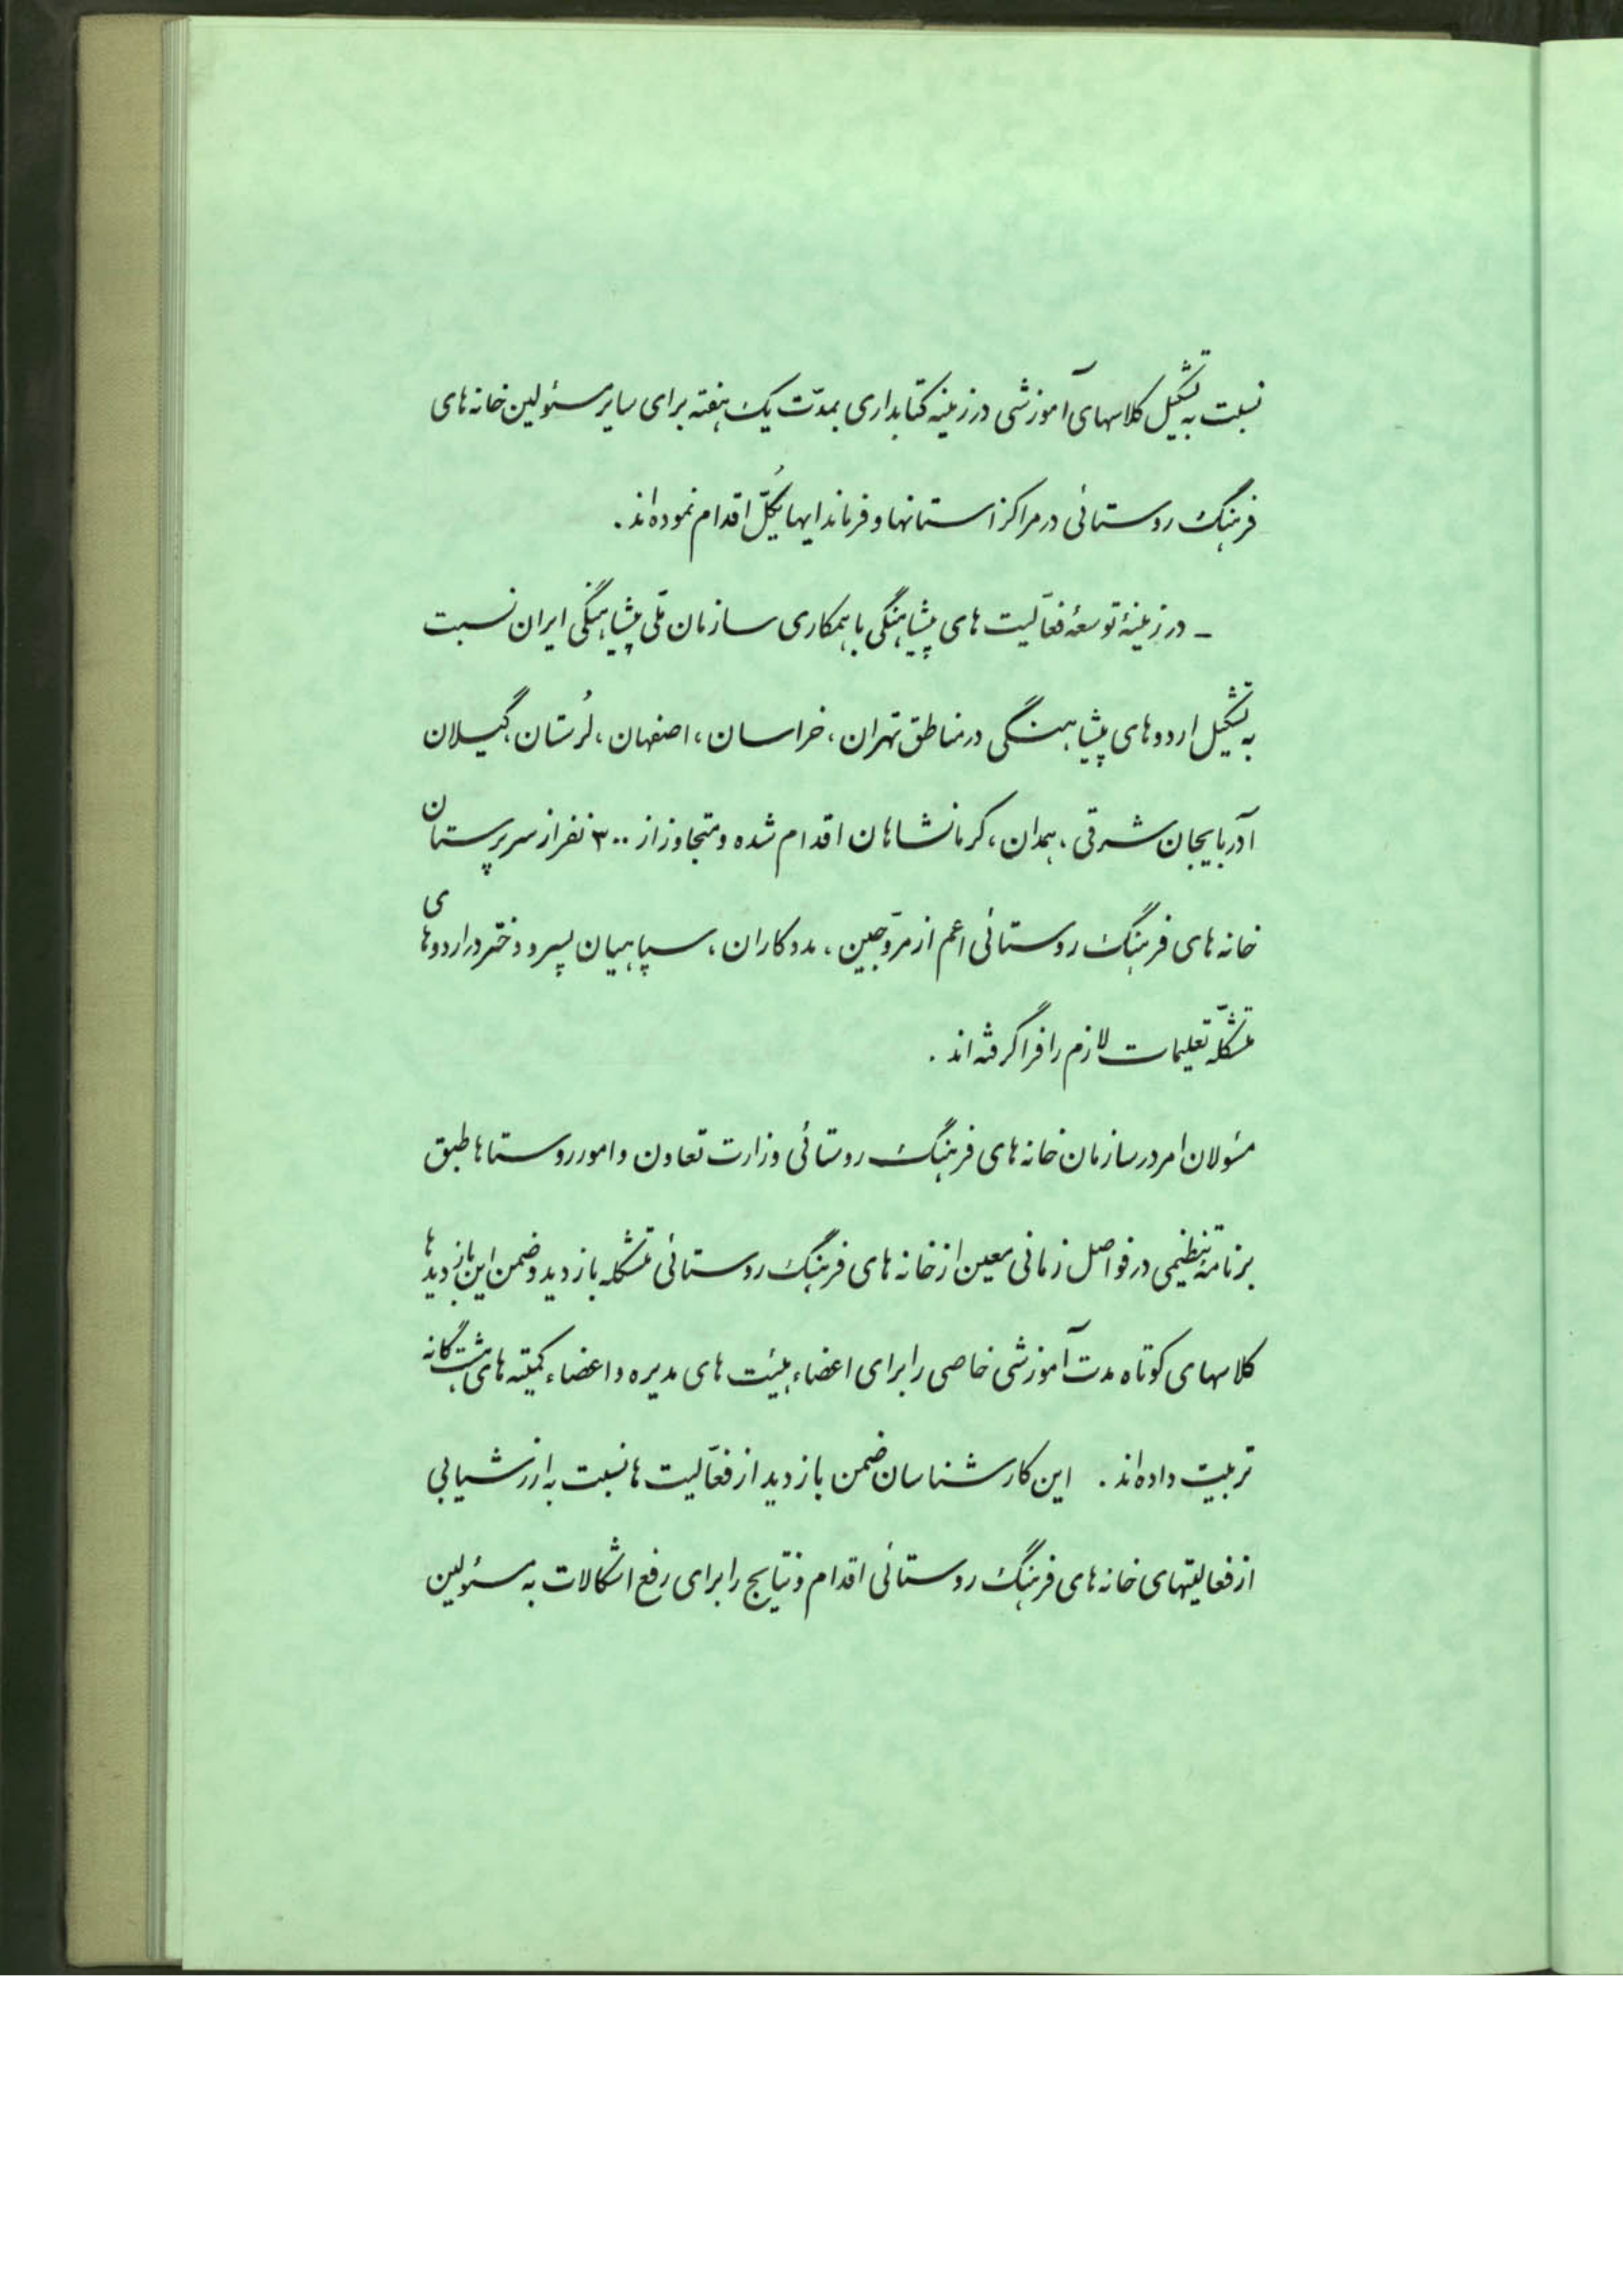 نسبت به تشکیل کلاسهای آموزشی در زمینه کتابداری بمدّت یک هفته برای سایر مسئولین خانه های
فرهنگ روستائی در مراکز استانها و فرماندایهایکُلّ اقدام نموده اند .
- در زمینهٔ توسعهٔ فعّالیت های پیشاهنگی با همکاری سازمان ملّی پیشاهنگی ایران نسبت
به تشکیل اردوهای پیشاهنگی در مناطق تهران ، خراسان ، اصفهان ، لُرستان ، گیلان
آذربایجان شرقی ، همدان ، کرمانشاهان اقدام شده و متجاوز از ۳۰۰ نفر از سرپرستان
خانه های فرهنگ روستائی اعم از مروّجین ، مددکاران ، سپاهیان پسر و دختر در اردوهای
متشکّله تعلیمات لازم را فرا گرفته اند .
مسئولان امر در سازمان خانه های فرهنگ روستائی وزارت تعاون و امور روستاها طبق
برنامهٔ تنظیمی در فواصل زمانی معین از خانه های فرهنگ روستائی متشکله بازدید و ضمن این بازدیدها
کلاسهای کوتاه مدت آموزشی خاصی را برای اعضاء هیئت های مدیره و اعضاء کمیته های هشتگانه
تربیت داده اند . این کارشناسان ضمن بازدید از فعّالیت ها نسبت به ارزشیابی
از فعالیتهای خانه های فرهنگ روستائی اقدام و نتایج را برای رفع اشکالات به مسئولین